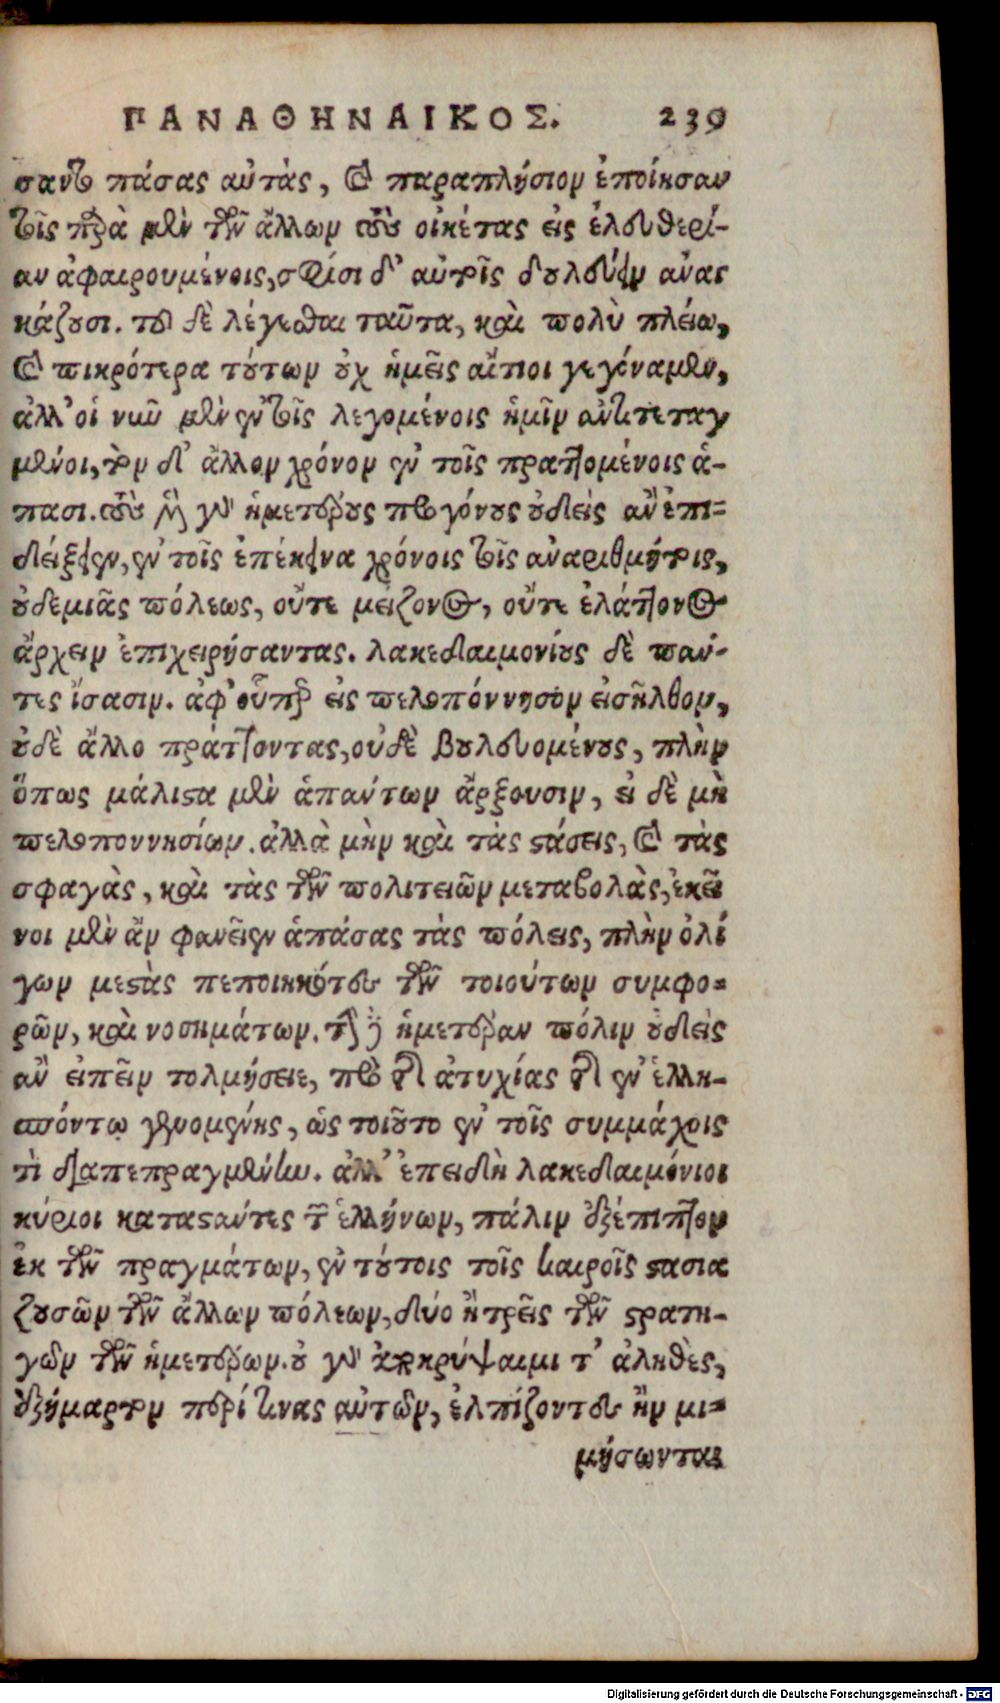 ΠΑΝΑΘΗΝΑΙΚΟΣ. 239
σαντο πάσας αὐτὰς, καὶ παραπλήσιον ἐποίησαν
τοῖς παρὰ μὲν τῶν ἄλλων τοὺς οἰκέτας εἰς ἐλευθερί-
αν ἀφαιρουμένοις, σφίσι δ' αὐτοῖς δουλεύειν ἀναγ
κάζουσι. τοῦ δὲ λέγεσθαι ταῦτα, καὶ πολὺ πλείω,
καὶ πικρότερα τούτων οὐχ ἡμεῖς αἴτιοι γεγόναμεν,
ἀλλ' οἱ νῦν μὲν ἐν τοῖς λεγομένοις ἡμῖν ἀντιτεταγ
μένοι, τὸν δ' ἄλλον χρόνον ἐν τοῖς πραττομένοις ἅ-
πασι. τοὺς μὲν γὰρ ἡμετέρους προγόνους οὐδεὶς ἂν ἐπι-
δείξειεν, ἐν τοῖς ἐπέκεινα χρόνοις τοῖς ἀναριθμήτοις,
οὐδεμιᾶς πόλεως, οὔτε μείζονος, οὔτε ἐλάττονος
ἄρχειν ἐπιχειρήσαντας. λακεδαιμονίους δὲ πάν-
τες ἴσασιν. ἀφ' οὗπερ εἰς πελοπόννησον εἰσῆλθον,
οὐδὲ ἄλλο πράττοντας, οὐδὲ βουλευομένους, πλὴν
ὅπως μάλιστα μὲν ἁπάντων ἄρξουσιν, εἰ δὲ μὴ
πελοποννησίων. ἀλλὰ μὴν καὶ τὰς στάσεις, καὶ τὰς
σφαγὰς, καὶ τὰς τῶν πολιτειῶν μεταβολὰς, ἐκεῖ
νοι μὲν ἂν φανεῖεν ἁπάσας τὰς πόλεις, πλὴν ὀλί
γων μεστὰς πεποιηκότες τῶν τοιούτων συμφο-
ρῶν, καὶ νοσημάτων. τὴν δὲ ἡμετέραν πόλιν οὐδεὶς
ἂν εἰπεῖν τολμήσειε, πρὸ τῆς ἀτυχίας τῆς ἐν ἑλλη-
σπόντῳ γενομένης, ὡς τοιοῦτο ἐν τοῖς συμμάχοις
τὶ διαπεπραγμένην. ἀλλ' ἐπειδὴ λακεδαιμόνιοι
κύριοι καταστάντες τῶν ἑλλήνων, πάλιν ἐξέπιπτον
ἐκ τῶν πραγμάτων, ἐν τούτοις τοῖς καιροῖς στασια
ζουσῶν τῶν ἄλλων πόλεων, δύο ἢ τρεῖς τῶν στρατη-
γῶν τῶν ἡμετέρων. οὐ γὰρ ἀποκρύψαιμι τ' ἀληθὲς,
ἐξήμαρτον περί τινας αὐτῶν, ἐλπίζοντες ἢν μι-
μήσωνται
Digitalisierung gefördert durch die Deutsche Forschungsgemeinschaft - DFG